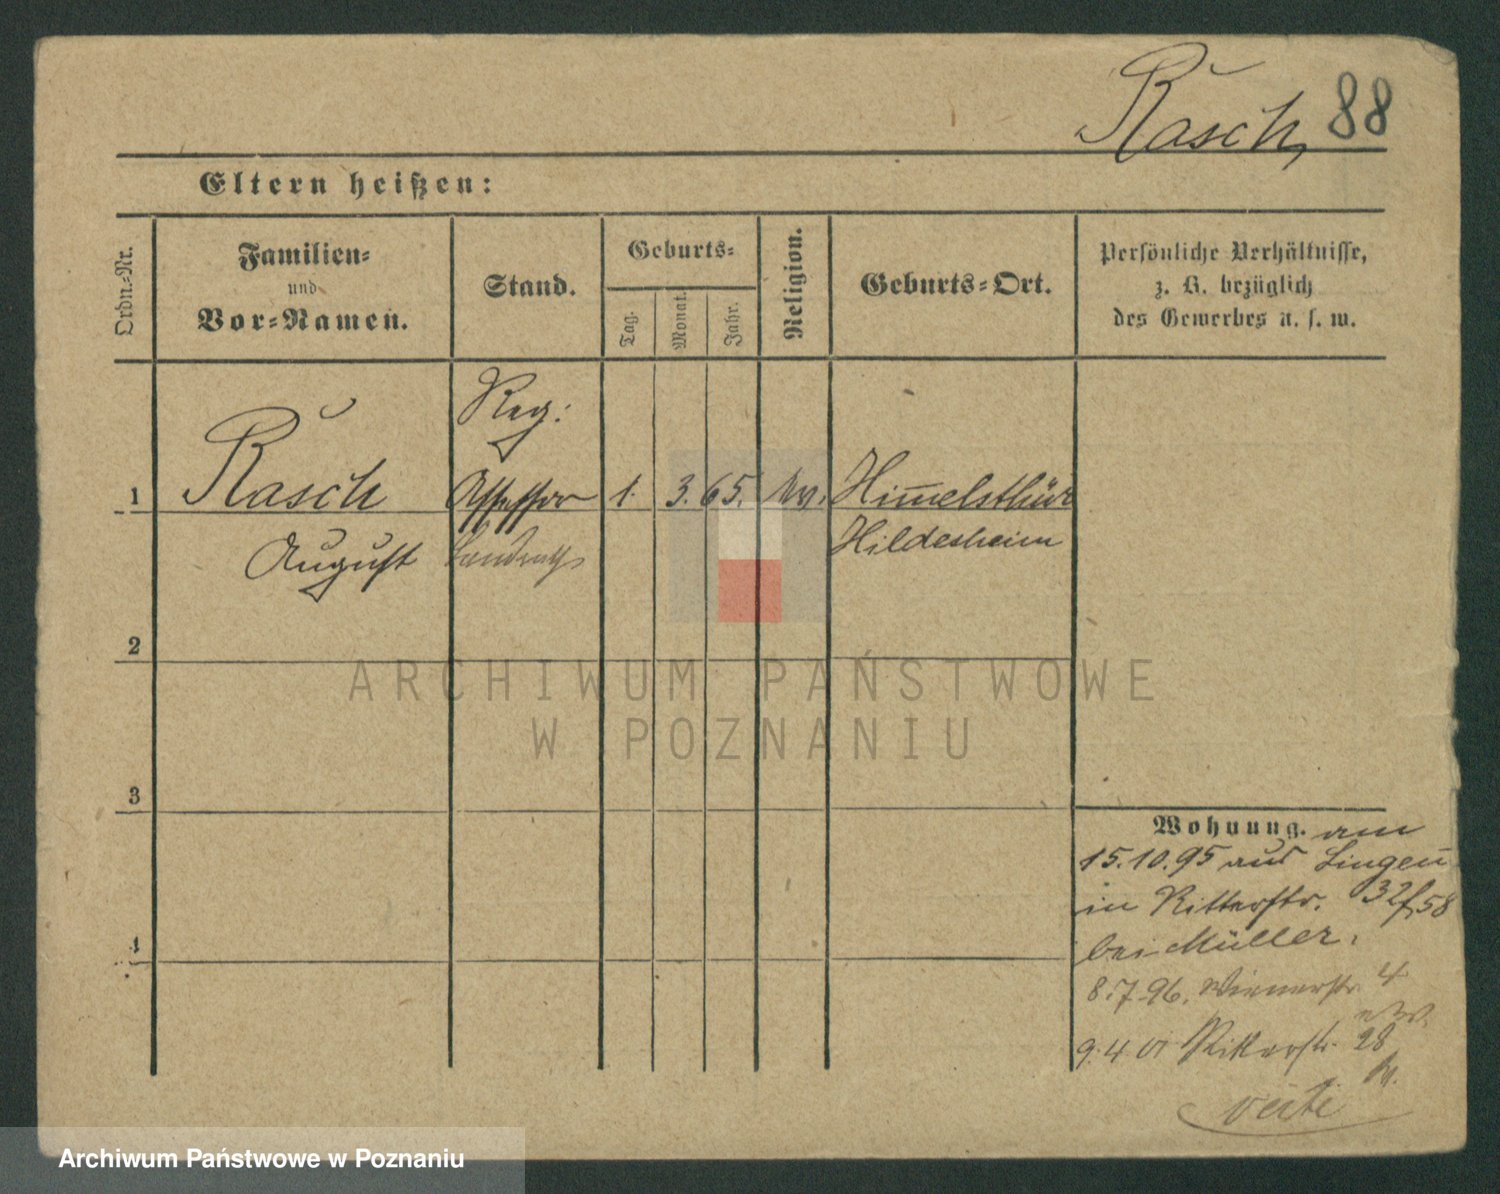 Rasch, 88
Eltern heißen:
Ordn.-Nr.
Familien-
und
Vor-Namen.
Stand.
Geburts-
Tag.
Monat.
Jahr.
Religion.
Geburts-Ort.
Persönliche Verhältnisse,
z. B. bezüglich
des Gewerbes u. s. w.
Reg:
1 Rasch Assessor 1. 3. 65. Himelsthür
August Landrath Hildesheim
2
3
4
ARCHIWUM PAŃSTWOWE
W POZNANIU
Wohnung. am
15.10.95 aus Lingen
in Ritterstr. 32 58
bei Müller.
8.7.96. Wienerstr. 4
9.4.01 Ritterstr. 28
verte
Archiwum Państwowe w Poznaniu